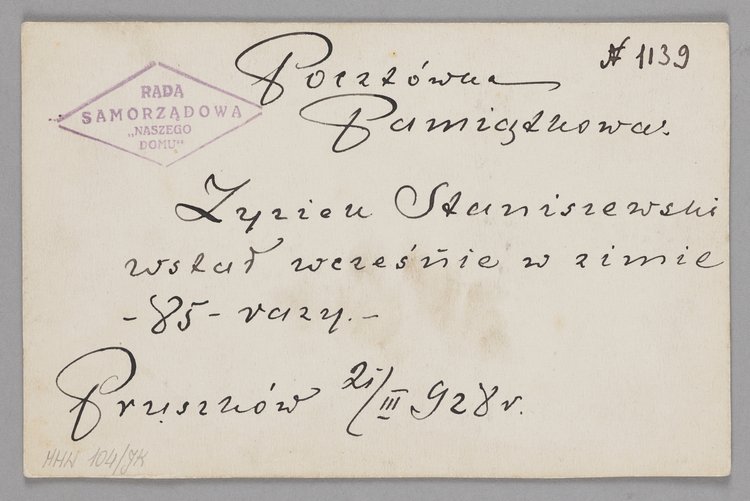 RADA
SAMORZĄDOWA
„NASZEGO
DOMU"
№ 1139
Pocztówka
Pamiątkowa.
Zyziek Staniszewski
wstał wcześnie w zimie
- 85 - razy. -
Pruszków 21/III 928 r.
MHW 104/JK